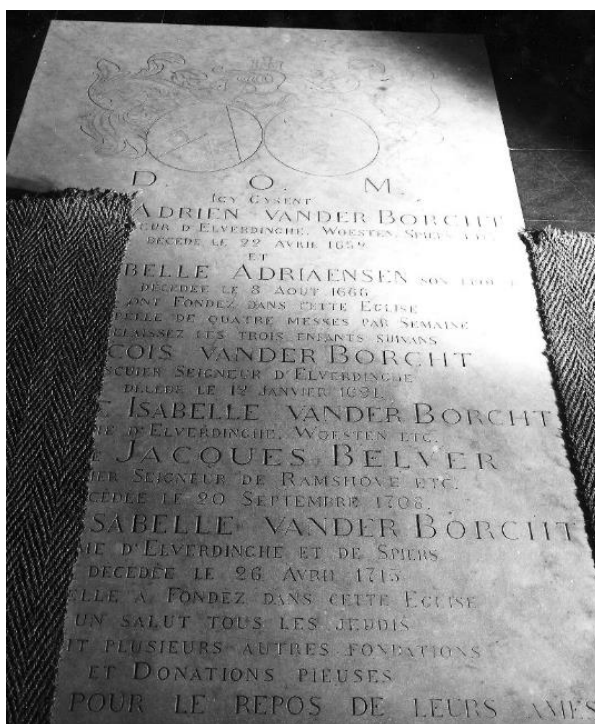 D. O. M.
ICY GYSENT
ADRIEN VANDER BORCHT
EUR D'ELVERDINCHE, WOESTEN, SPIERS ETC.
DECEDE LE 22 AVRIL 1652
ET
BELLE ADRIAENSEN SON
DECEDEE LE 8 AOUT 1666
ONT FONDEZ DANS CETTE EGLISE
PELLE DE QUATRE MESSES PAR SEMAINE
ELAISSEZ LES TROIS ENFANTS SUIVANS
COIS VANDER BORCHT
SCUIER SEIGNEUR D'ELVERDINCHE
DECEDE LE 12 JANVIER 1691
E ISABELLE VANDER BORCHT
ME D'ELVERDINCHE, WOESTEN ETC.
JACQUES BELVER
IER SEIGNEUR DE RAMSHOVE ETC.
CEDEE LE 20 SEPTEMBRE 1708.
ISABELLE VANDER BORCHT
ME D'ELVERDINCHE ET DE SPIERS
DECEDEE LE 26 AVRIL 1715
ELLE A FONDEZ DANS CETTE EGLISE
UN SALUT TOUS LES JEUDIS
IT PLUSIEURS AUTRES FONDATIONS
ET DONATIONS PIEUSES
POUR LE REPOS DE LEURS AMES